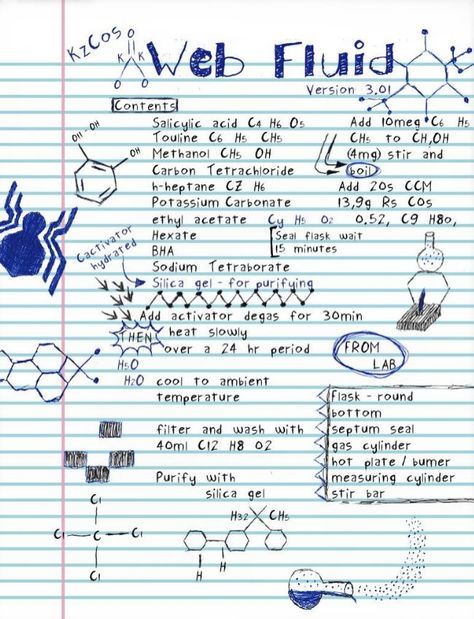 KzCos
K O K
O O
Web Fluid
Version 3.01
Contents
Salicylic acid C4 H6 O5
Touline C6 H5 CH5
Methanol CH5 OH
Carbon Tetrachloride
h-heptane CZ H6
Potassium Carbonate
ethyl acetate Cy H5 O2
Hexate
BHA
Sodium Tetraborate
Silica gel - for purifying
Add 10meg C6 H5
CH5 to CH,OH
(4mg) stir and
boil
Add 20s CCM
13,9g Rs COs
0.52, C9 H8o,
Seal flask wait
15 minutes
OH - OH
OH
Cactivator
hydrated
Add activator degas for 30min
THEN heat slowly
over a 24 hr period
H5O
H2O cool to ambient
temperature
FROM
LAB
filter and wash with
40ml C12 H8 O2
Purify with
silica gel
flask - round
bottom
septum seal
gas cylinder
hot plate / bumer
measuring cylinder
stir bar
Cl
Cl C Cl
Cl
H32 CH5
H
H